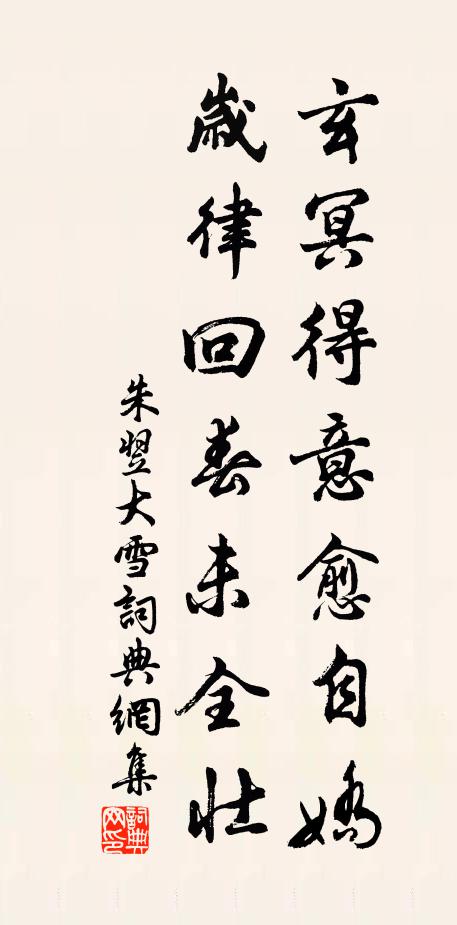 玄冥得意愈自嬌
歲律回春未全壯
朱翌大雪詞典網集
詞典網印